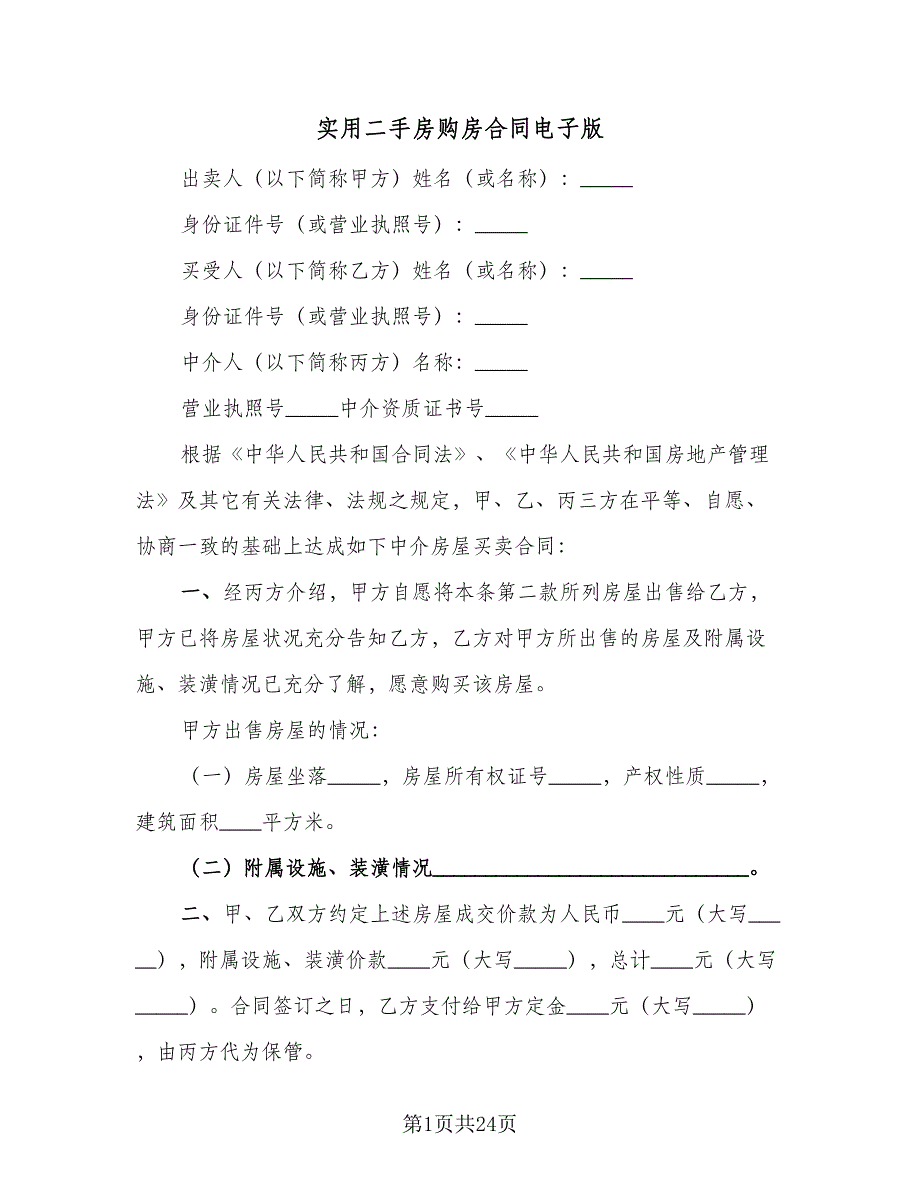 实用二手房购房合同电子版
出卖人（以下简称甲方）姓名（或名称）：_____
身份证件号（或营业执照号）：_____
买受人（以下简称乙方）姓名（或名称）：_____
身份证件号（或营业执照号）：_____
中介人（以下简称丙方）名称：_____
营业执照号_____中介资质证书号_____
根据《中华人民共和国合同法》、《中华人民共和国房地产管理
法》及其它有关法律、法规之规定，甲、乙、丙三方在平等、自愿、
协商一致的基础上达成如下中介房屋买卖合同：
一、经丙方介绍，甲方自愿将本条第二款所列房屋出售给乙方，
甲方已将房屋状况充分告知乙方，乙方对甲方所出售的房屋及附属设
施、装潢情况已充分了解，愿意购买该房屋。
甲方出售房屋的情况：
（一）房屋坐落_____，房屋所有权证号_____，产权性质_____，
建筑面积____平方米。
（二）附属设施、装潢情况______________________________。
二、甲、乙双方约定上述房屋成交价款为人民币____元（大写___
__），附属设施、装潢价款____元（大写_____），总计____元（大写
_____）。合同签订之日，乙方支付给甲方定金____元（大写_____）
，由丙方代为保管。
第1页共24页